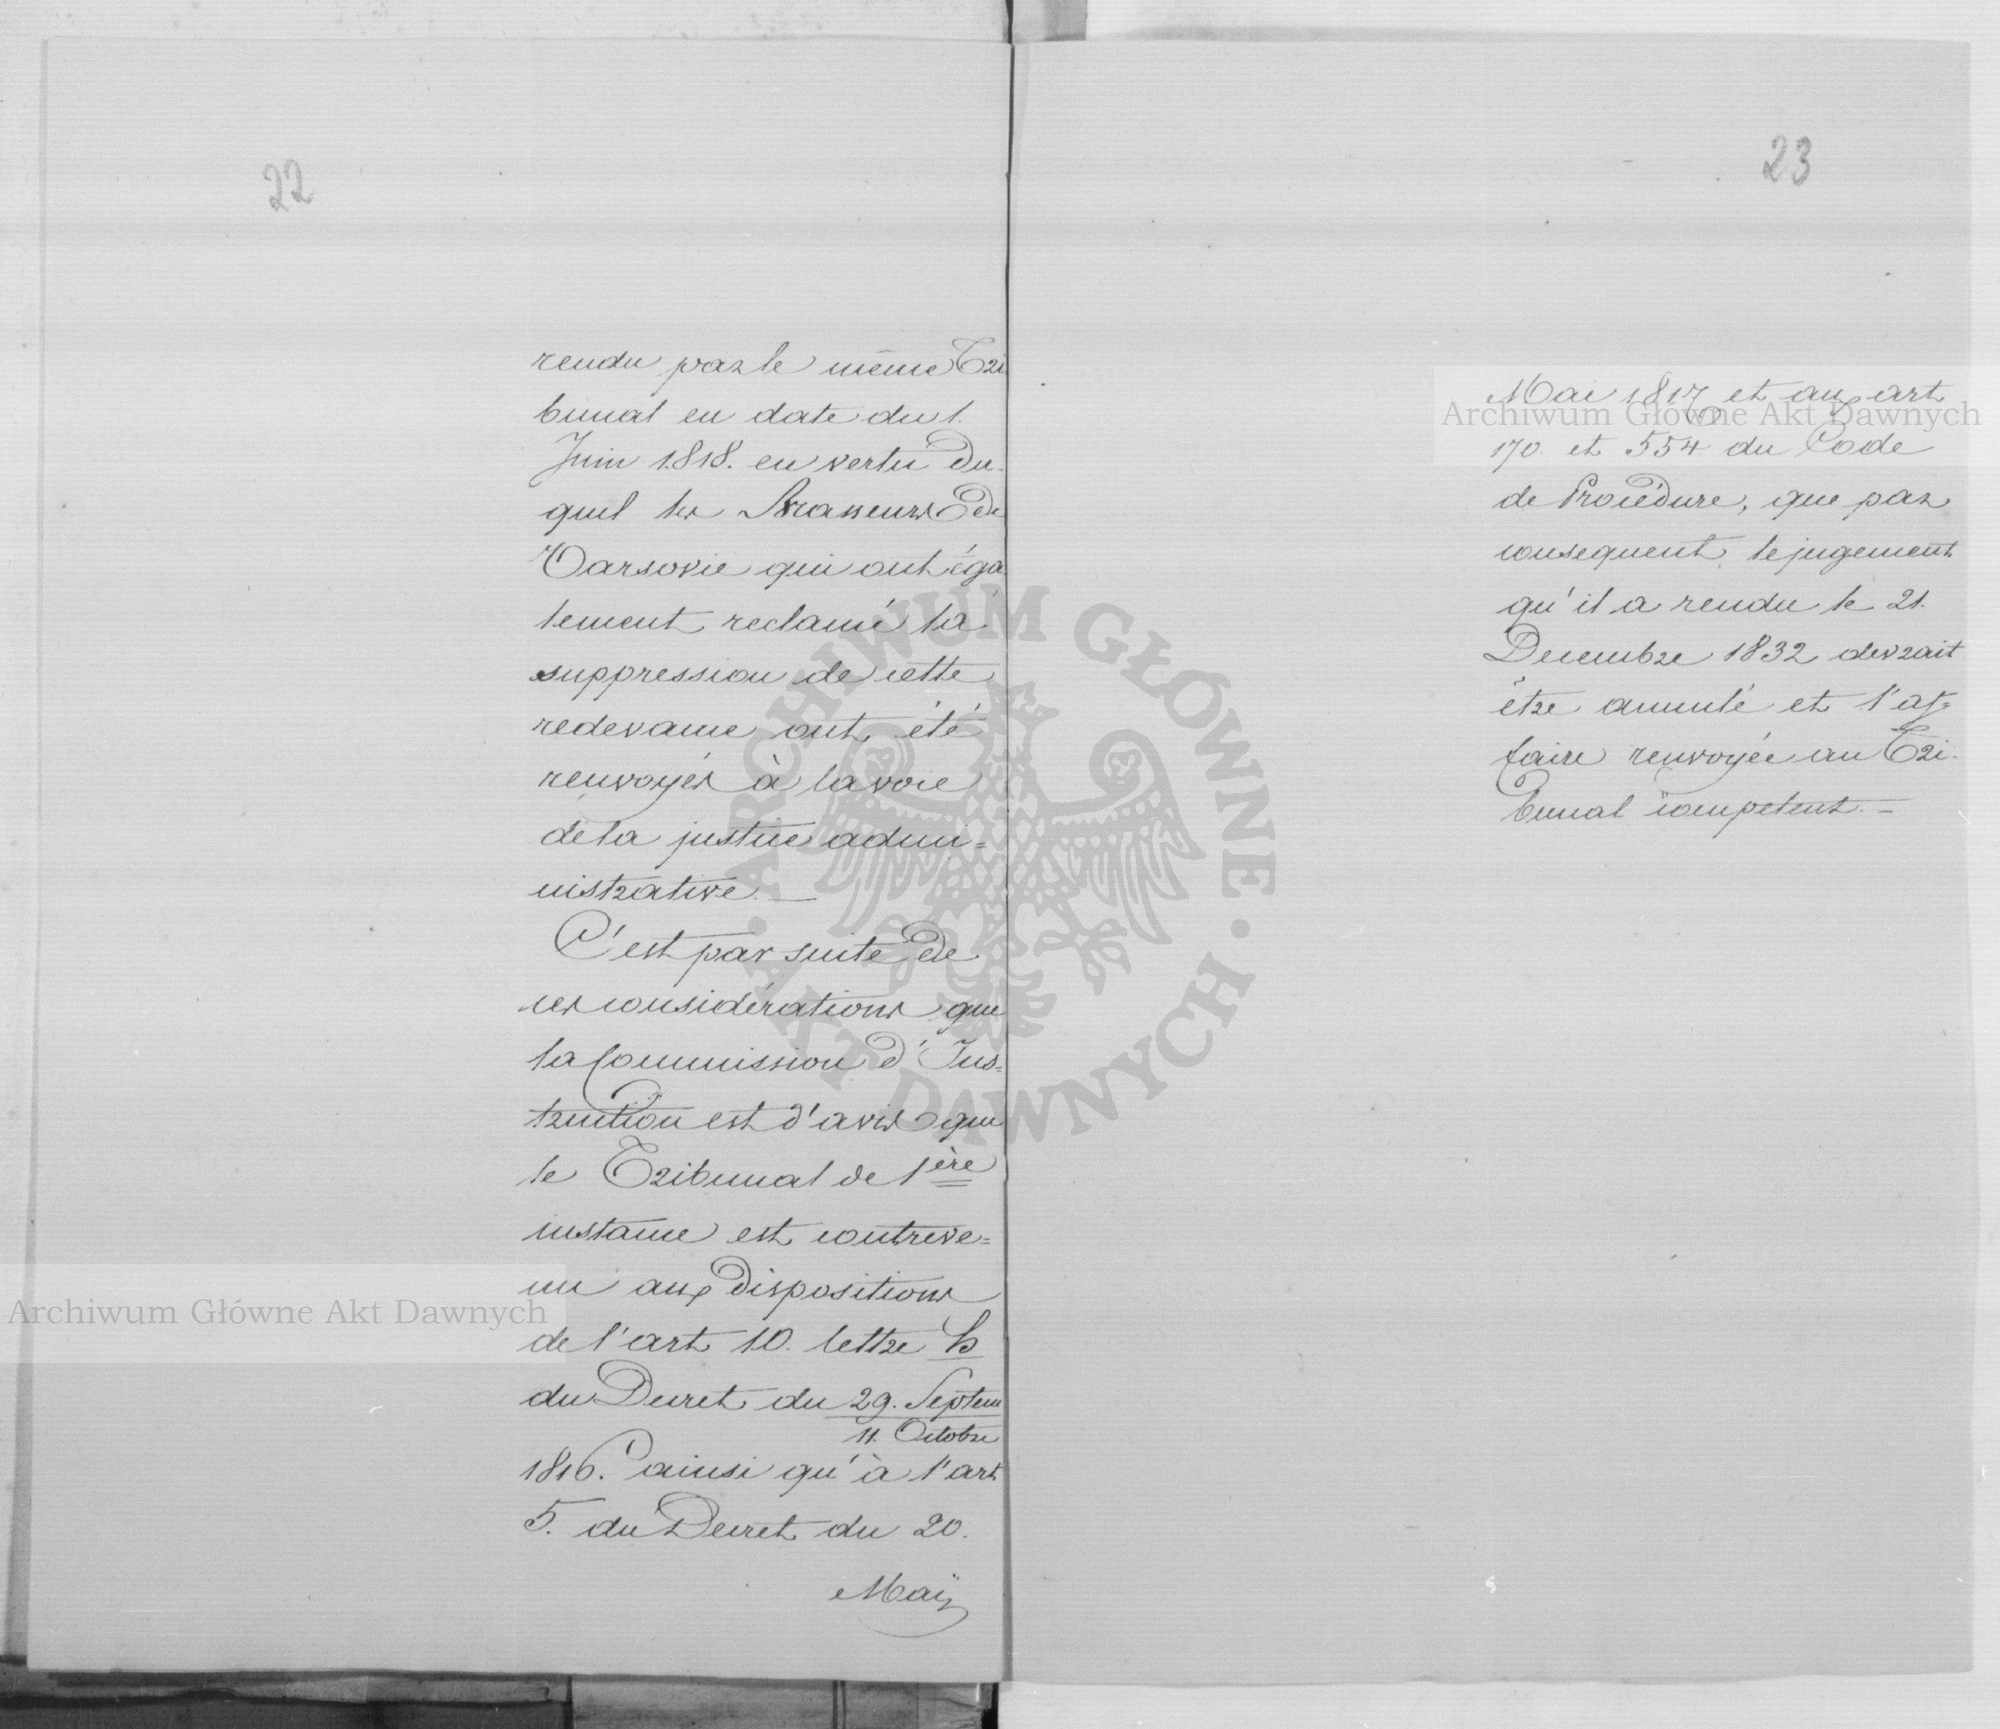 22
rendu par le même Tri
bunal en date du 1.
Juin 1818. en vertu du-
quel les Brasseurs de
Varsovie qui ont éga
lement reclamé la
suppression de cette
redevance ont été
renvoyés à la voie
de la justice admi=
nistrative. —
C'est par suite de
ces considérations que
la Commission d'Ins=
truction est d'avis que
le Tribunal de 1ère
instance est contreve=
nu aux dispositions
de l'art 10. lettre b
du Decret du 29. Septem
11. Octobre
1816. ainsi qu'à l'art
5. du Decret du 20.
Maij
23
Mai 1817 et aux art
170. et 554 du Code
de Procédure, que par
consequent le jugement
qu'il a rendu le 21.
Decembre 1832 devrait
être annulé et l'af=
faire renvoyée au Tri-
bunal competent. —
Archiwum Główne Akt Dawnych
Archiwum Główne Akt Dawnych
ARCHIWUM GŁÓWNE AKT DAWNYCH